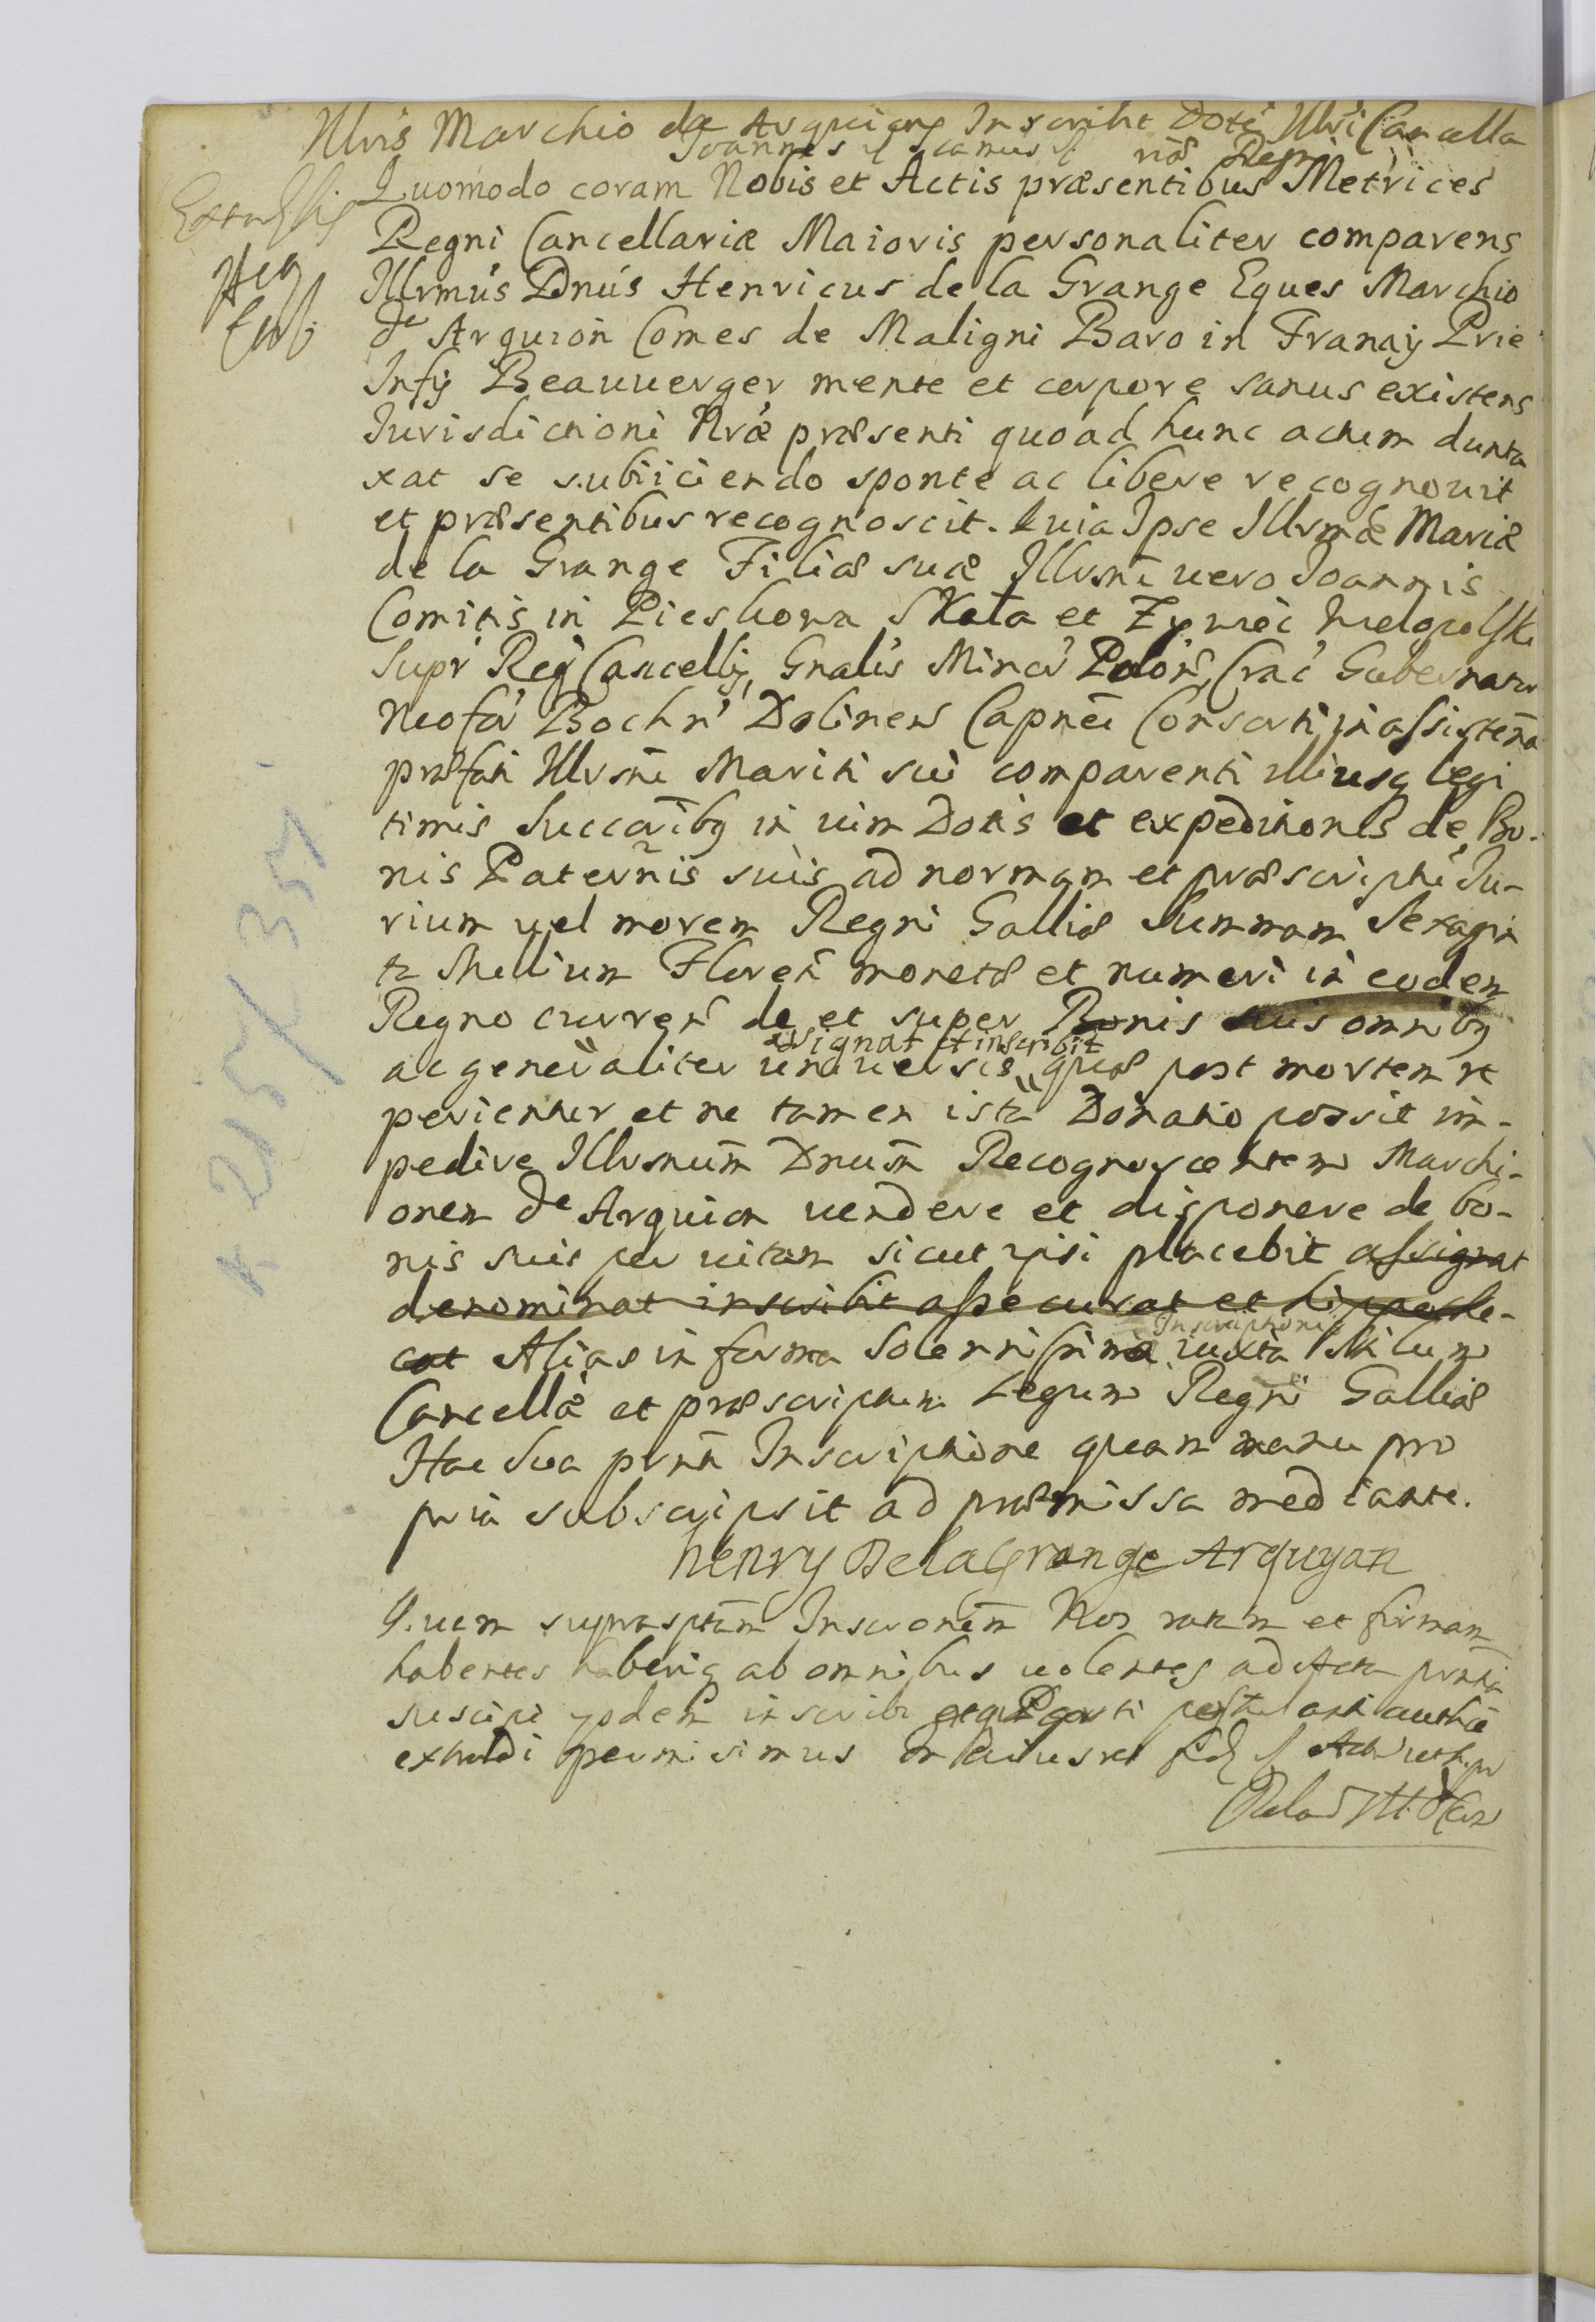 Illris Marchio de Arquian Inscribit Dotē Illri Cancella
Joannes riæ Regni
Quomodo coram Nobis et Actis præsentibus Metrices
Regni Cancellariæ Maioris personaliter comparens
Illrmus Dnus Henricus de la Grange Eques Marchio
de Arquion Comes de Maligni Baro in Franaij Prie
Infij Beauuerger mente et corpore sanus existens
Iurisdictioni Nræ præsenti quoad hunc actum dunta
xat se subiiciendo sponte ac libere recognouit
et præsentibus recognoscit. Quia Ipse Illrmæ Mariæ
de la Grange Filiæ suæ Illrmi uero Joannis
Comitis in Pieskowa Skała et Zywiec Wielopolski
Supr Reg Cancellij, Gnalis Minor Polon, Crac Gubernator
Neofor Bochn Dolinen Capnei Consorti in assistena
præfati Illrmi Mariti sui comparenti illiusq legi
timis Succorībg in uim Dotis et expeditionis de Bo-
nis Paternis suis ad normam et præscriptū Iu-
rium uel morem Regni Galliæ Summam Sexagin
ta Millium Floren monetæ et numeri in eodem
Regno curren de et super Bonis suis omnibg
assignat et inscribit
ac generaliter uniuersis quæ post mortem re
perientur et ne tamen ista Donatio possit im-
pedire Illrmum Dnum Recognoscentem Marchi-
onem de Arquian uendere et disponere de bo-
nis suis per uitam sicut ipsi placebit assignat
denominat inscribit assecurat et hippothe-
Inscriptionis
cat Alias in forma Solennissima iuxta Stilum
Cancellæ et præscriptum Legum Regni Galliæ
Hac Sua prnti Inscriptione quam manu pro
pria subscripsit ad præmissa mediante.
Henry De la Grange Arquyan
Quam suprasptam Inscronem Nos ratam et firmam
habentes haberiq ab omnibus uolentes ad Acta prntia
suscipi inscribi Parti
extradi permisimus